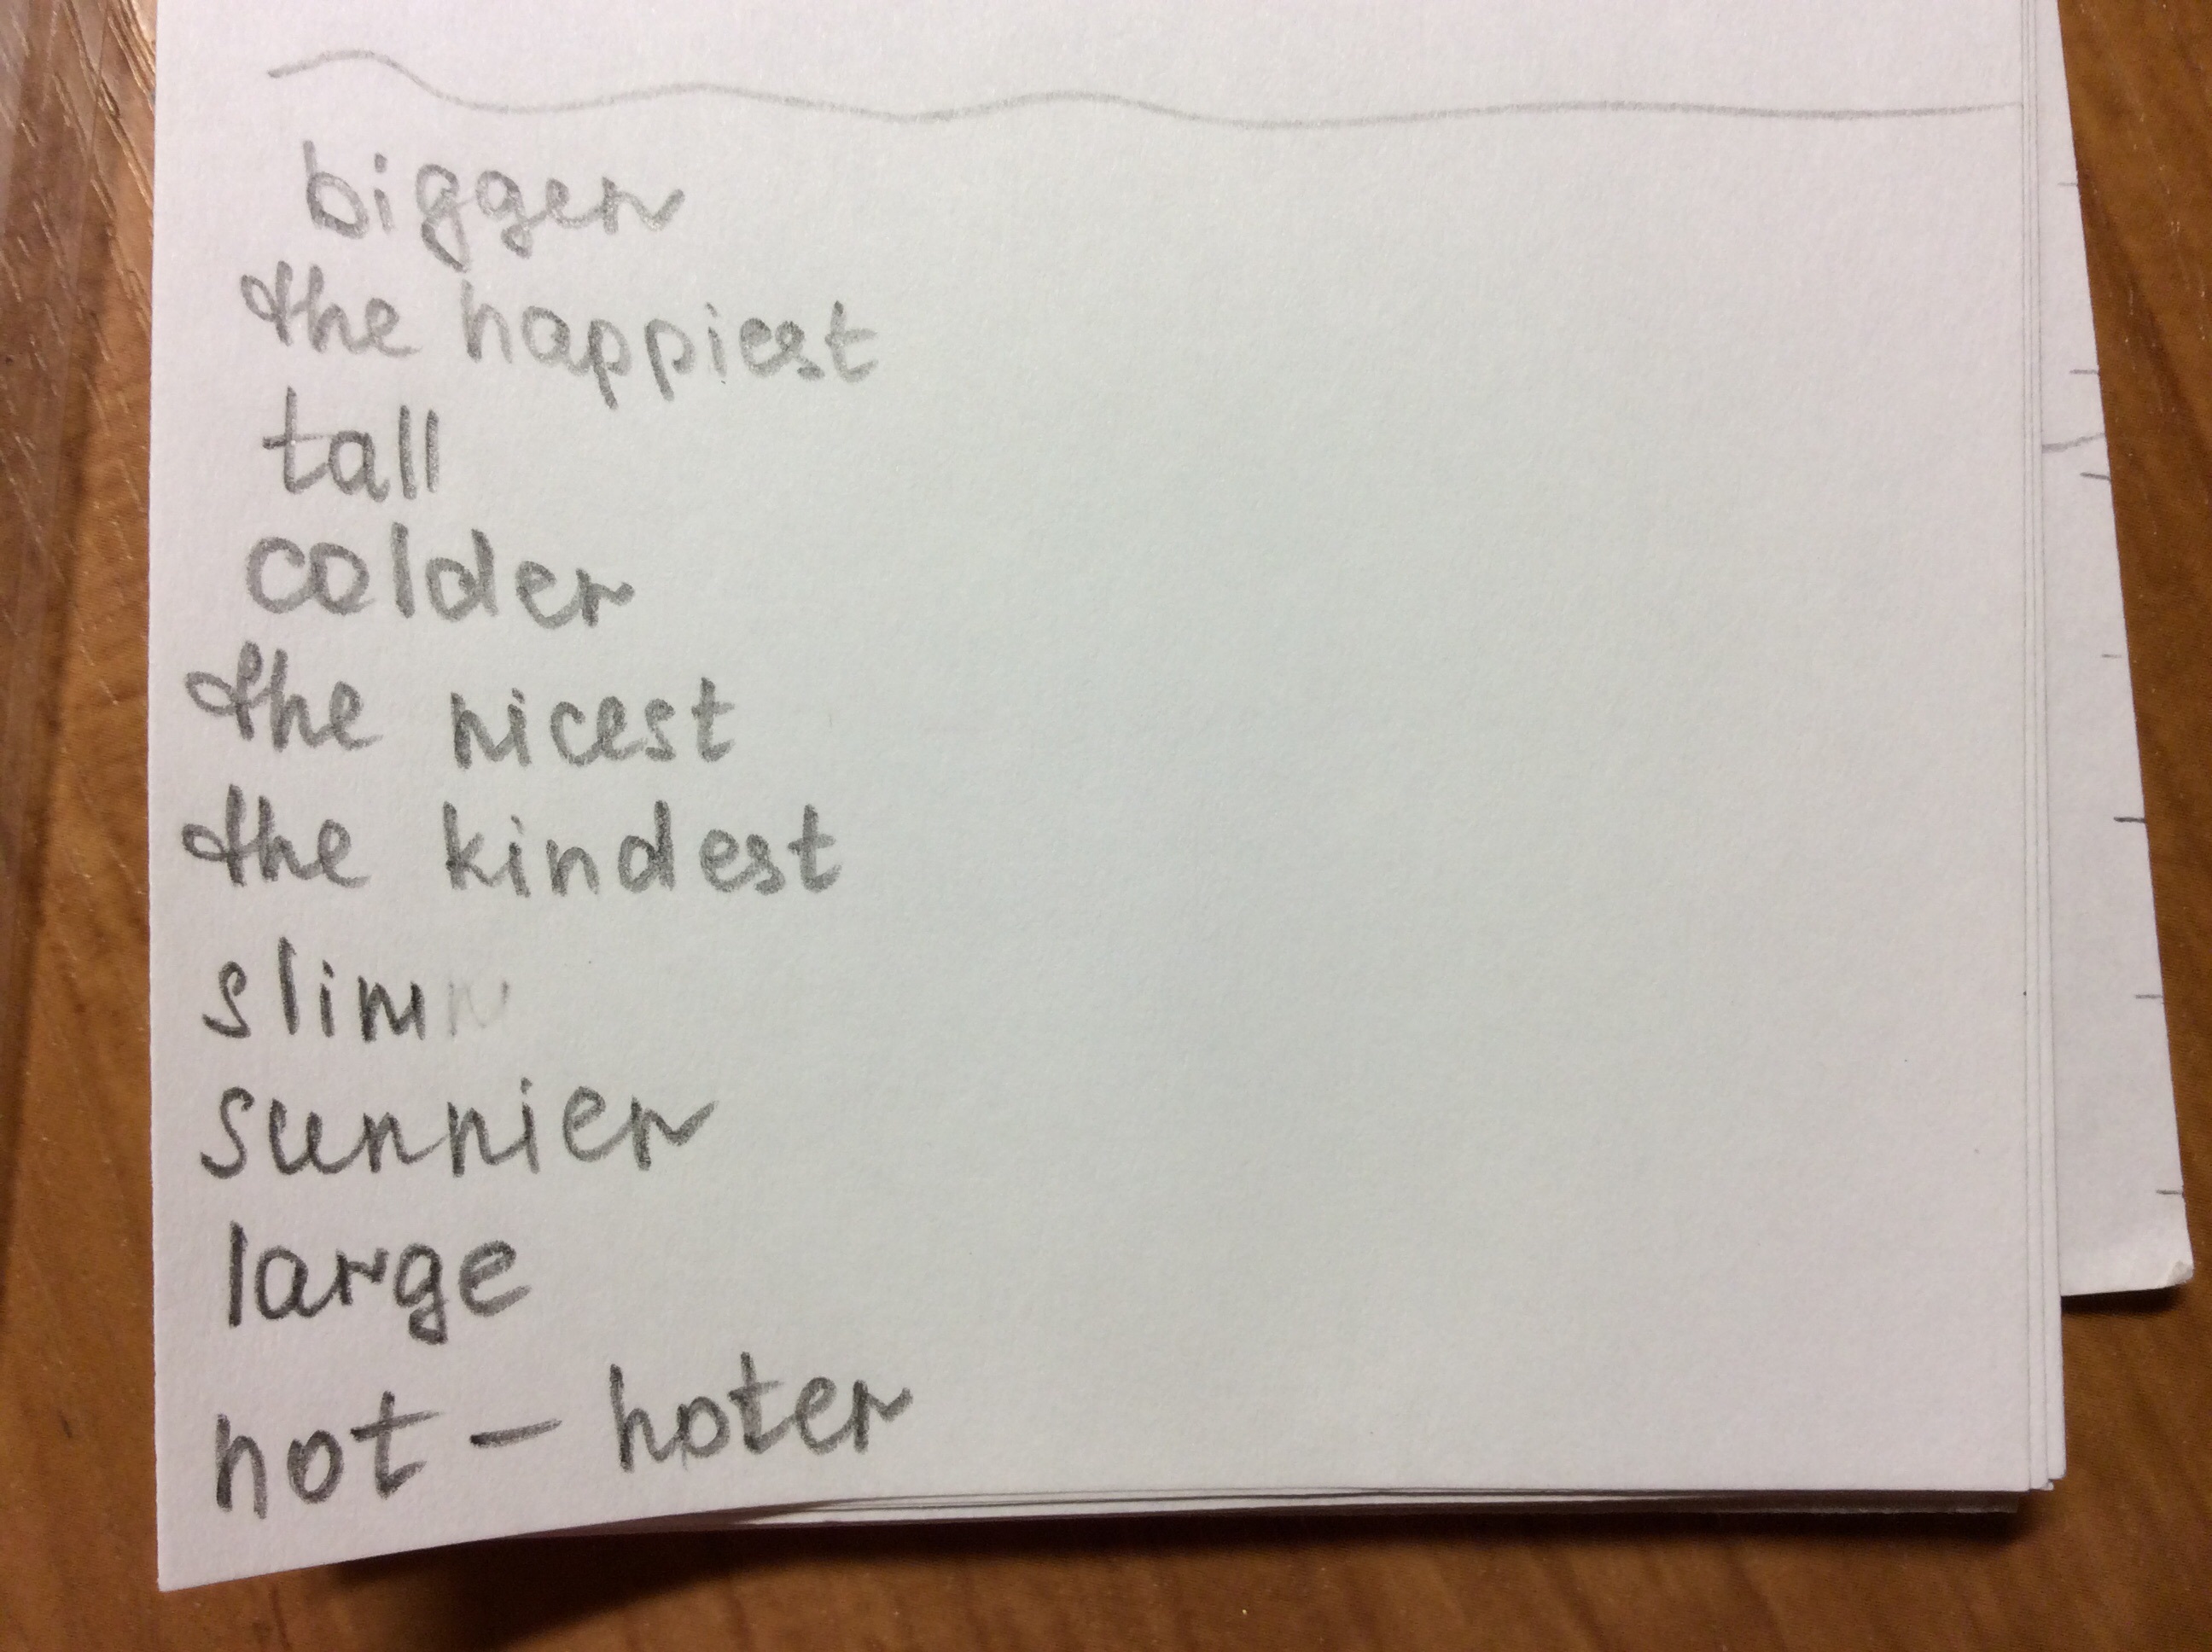 bigger
the happiest
tall
colder
the nicest
the kindest
slim
sunnier
large
hot - hoter